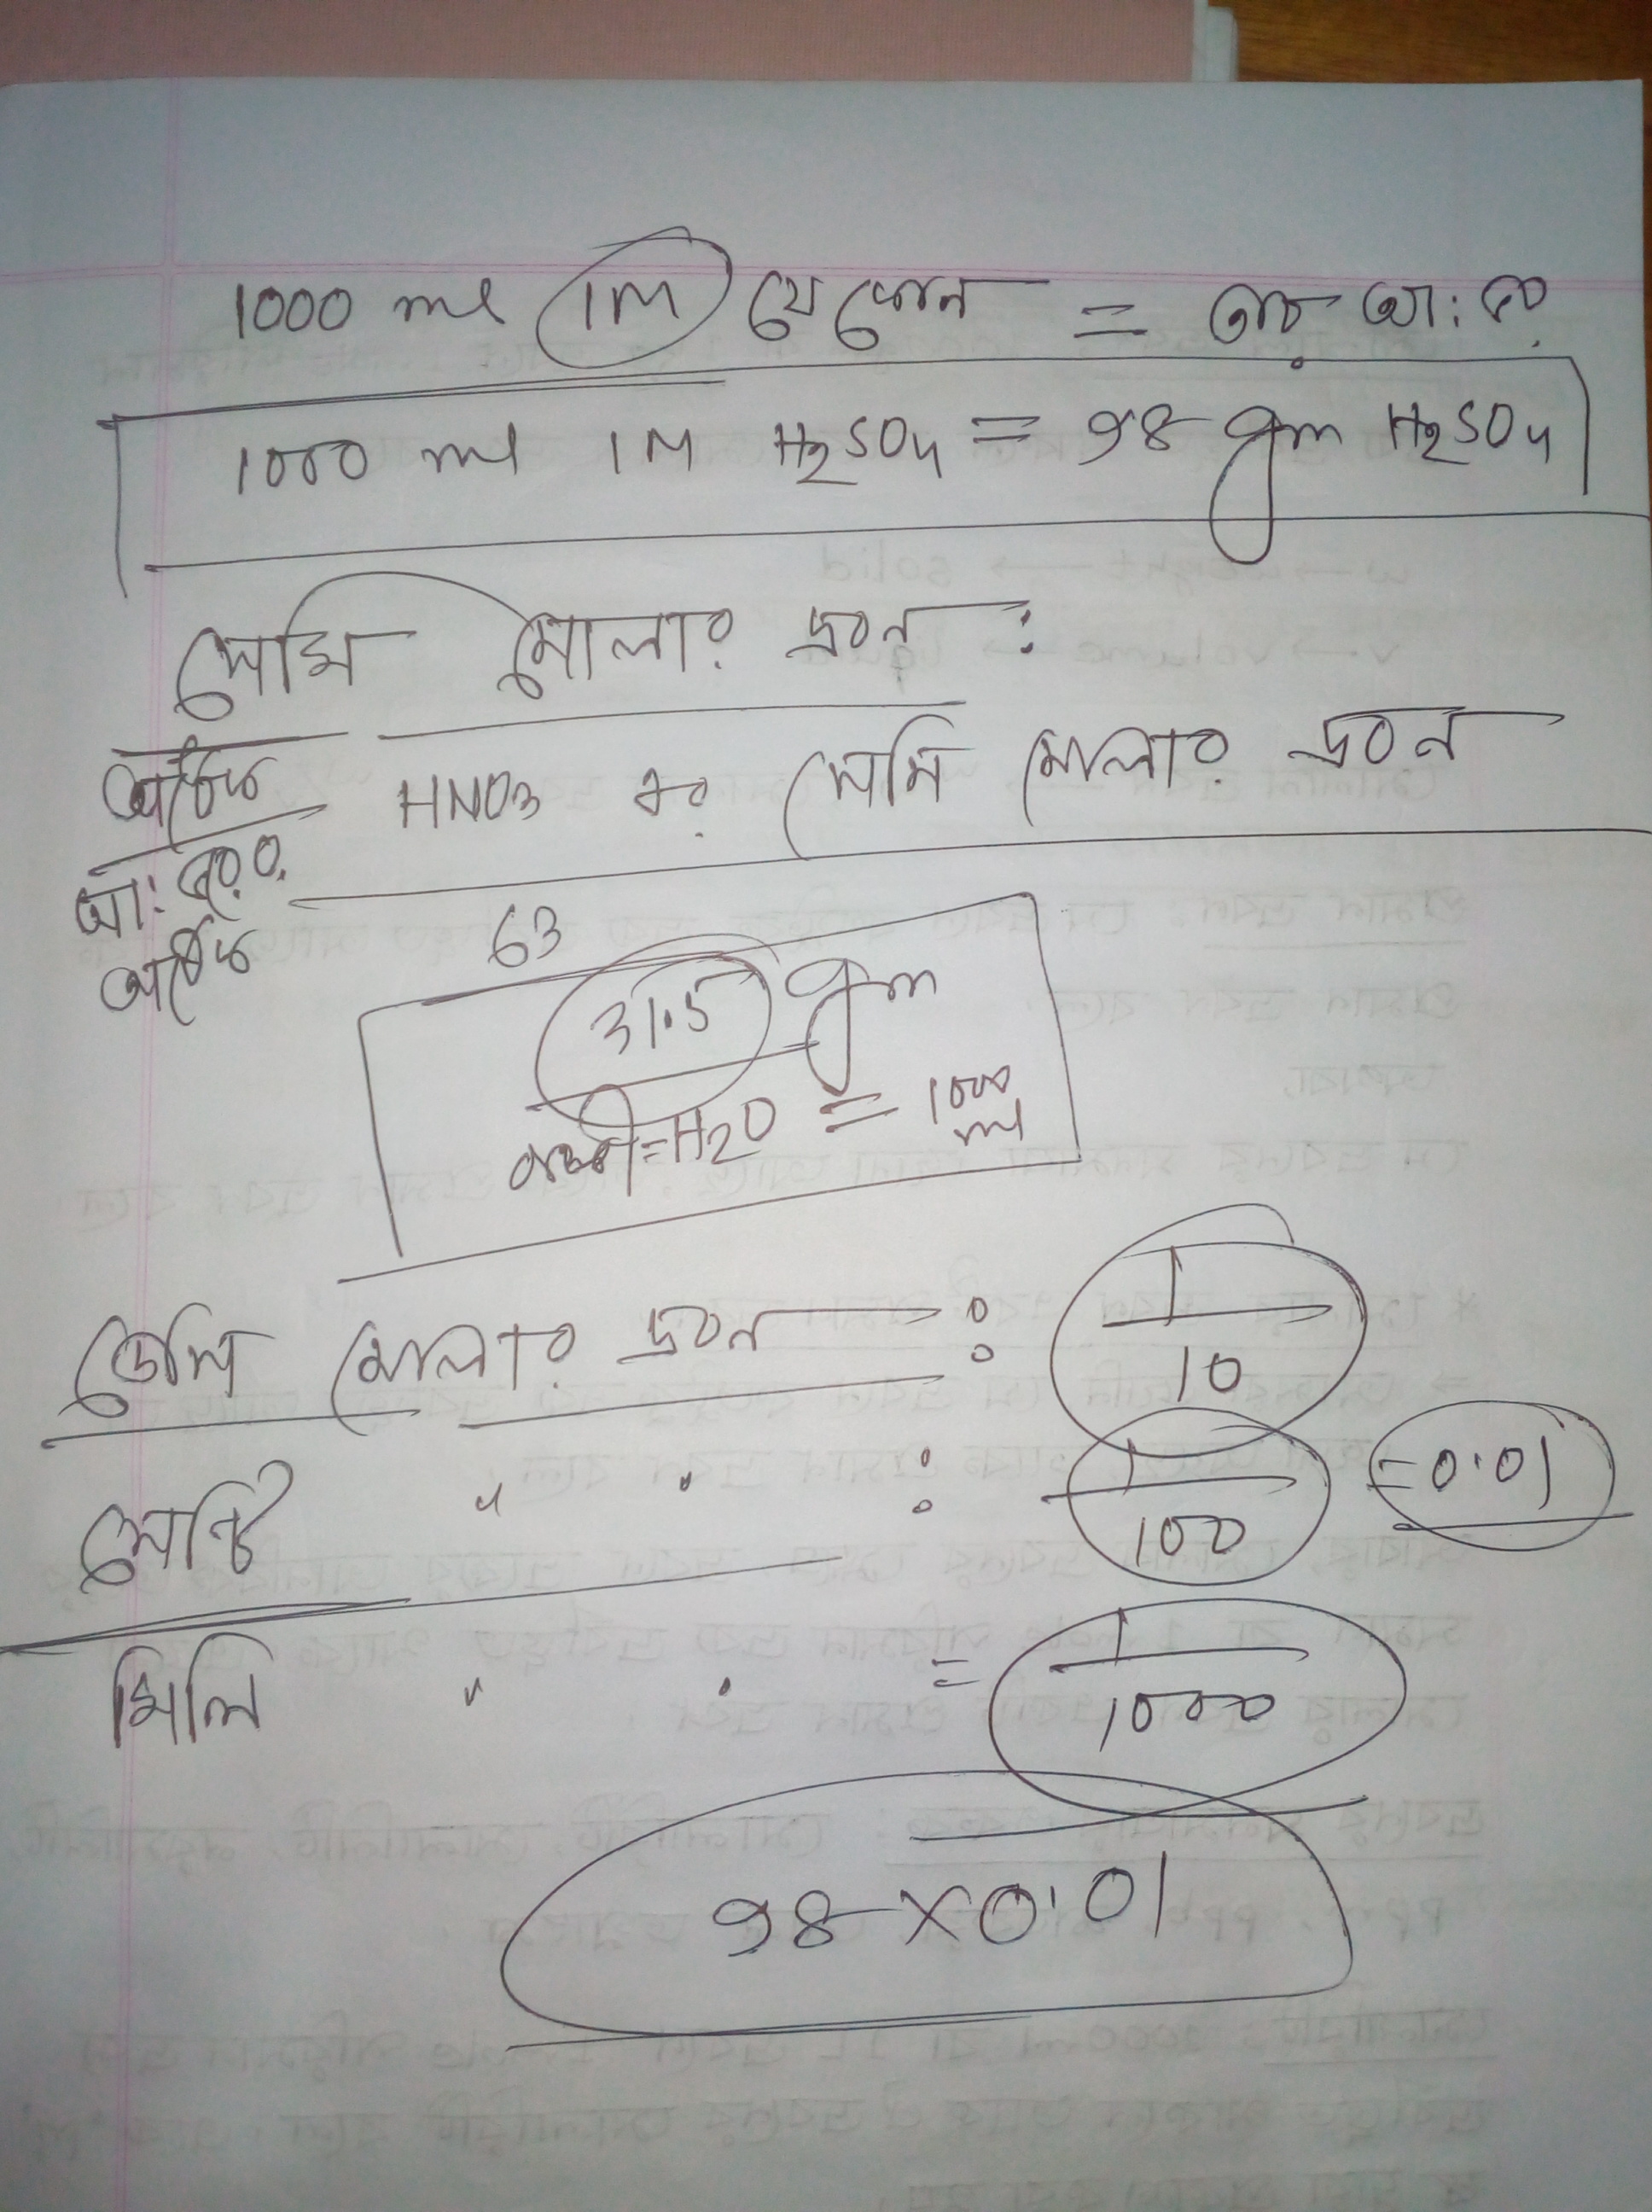 1000 ml 1M যে কোন = তার আ: ভ.
1000 ml 1M H2SO4 = 98 gm H2SO4
সেমি মোলার দ্রবন :
অর্ধেক HNO3 এর সেমি মোলার দ্রবন
আ:
অর্ধেক
63
31.5 gm
H2O = 1000 ml
ডেসি মোলার দ্রবন : 1/10
সেন্টি " " : 1/100 = 0.01
মিলি " " = 1/1000
98 × 0.01